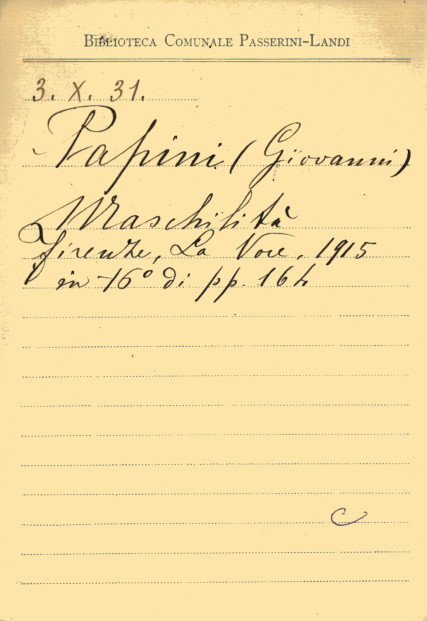 BIBLIOTECA COMUNALE PASSERINI-LANDI
3. X. 31.
Papini (Giovanni)
Maschilità
Firenze, La Voce, 1915
in 16° di pp. 164
C